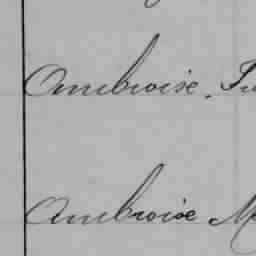 Ambroise
Ambroise